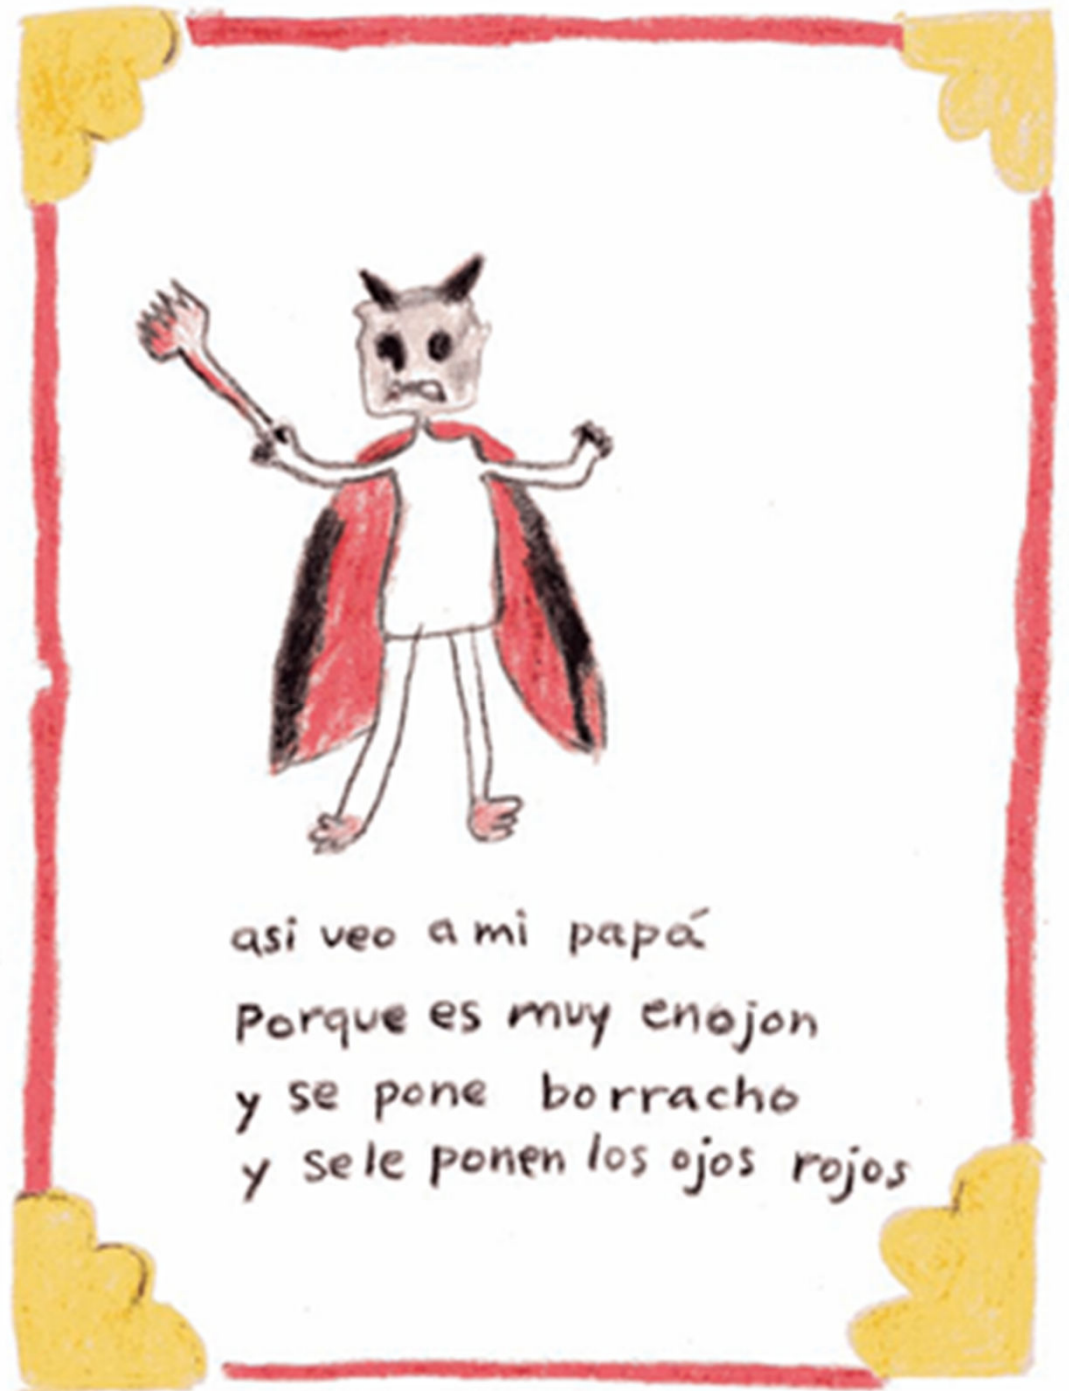 asi veo a mi papá
Porque es muy enojon
y se pone borracho
y sele ponen los ojos rojos